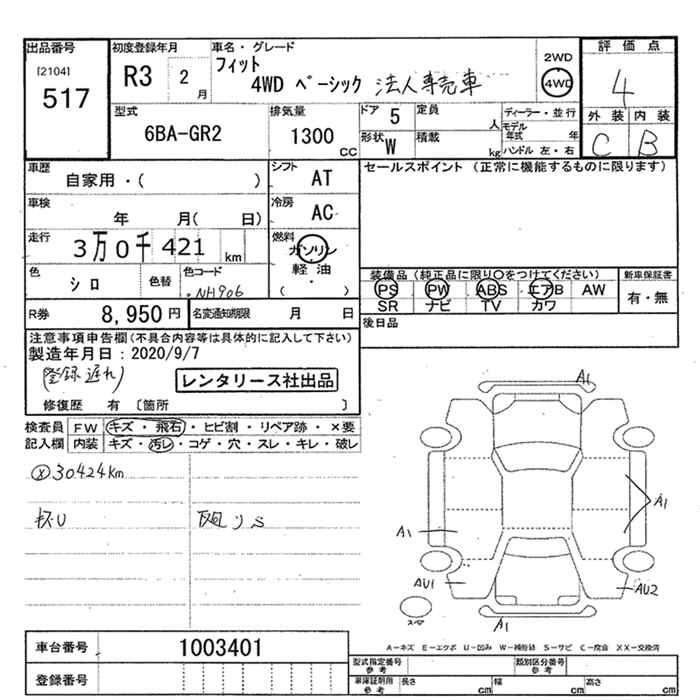 出品番号
[2104]
517
初度登録年月
R3 2 月
車名・グレード
フィット
4WD ベーシック 法人専売車
2WD
4WD
評価点
4
外装 内装
C B
型式
6BA-GR2
排気量
1300 CC
ドア 5
形状 W
定員 人
積載 kg
ディーラー・並行
モデル年式 年
ハンドル 左・右
車歴
自家用・( )
シフト AT
セールスポイント (正常に機能するものに限ります)
車検
年 月( 日)
冷房 AC
走行
3万0千421 km
燃料
ガソリン
軽油・
( )
色 シロ
色替
色コード
NH906
装備品(純正品に限り○をつけてください)
PS PW ABS エアB AW
SR ナビ TV カワ
新車保証書
有・無
R券 8,950円
名変通知期限 月 日
後日品
注意事項申告欄(不具合内容等は具体的に記入して下さい)
製造年月日:2020/9/7
(登録遅れ)
レンタリース社出品
修復歴 有 〔箇所 〕
検査員記入欄
FW キズ・飛石・ヒビ割・リペア跡・×要
内装 キズ・汚レ・コゲ・穴・スレ・キレ・破レ
ⓧ30424km
A1
A1
A1
AU1
AU2
A1
スペア
A-キズ E-エクボ U-凹み W-補修跡 S-サビ C-腐食 XX-交換済
車台番号 1003401
登録番号
型式指定番号 参考
類別区分番号 参考
車庫証明用 参考
長さ cm 幅 cm 高さ cm